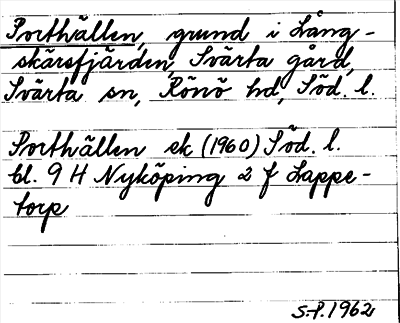 Porthällen, grund i Lång-
skärsfjärden, Svärta gård,
Svärta sn, Rönö hd, Söd. l.
Porthällen ek (1960) Söd. l.
bl. 9 H Nyköping 2 f Lappe-
torp
S.P. 1962